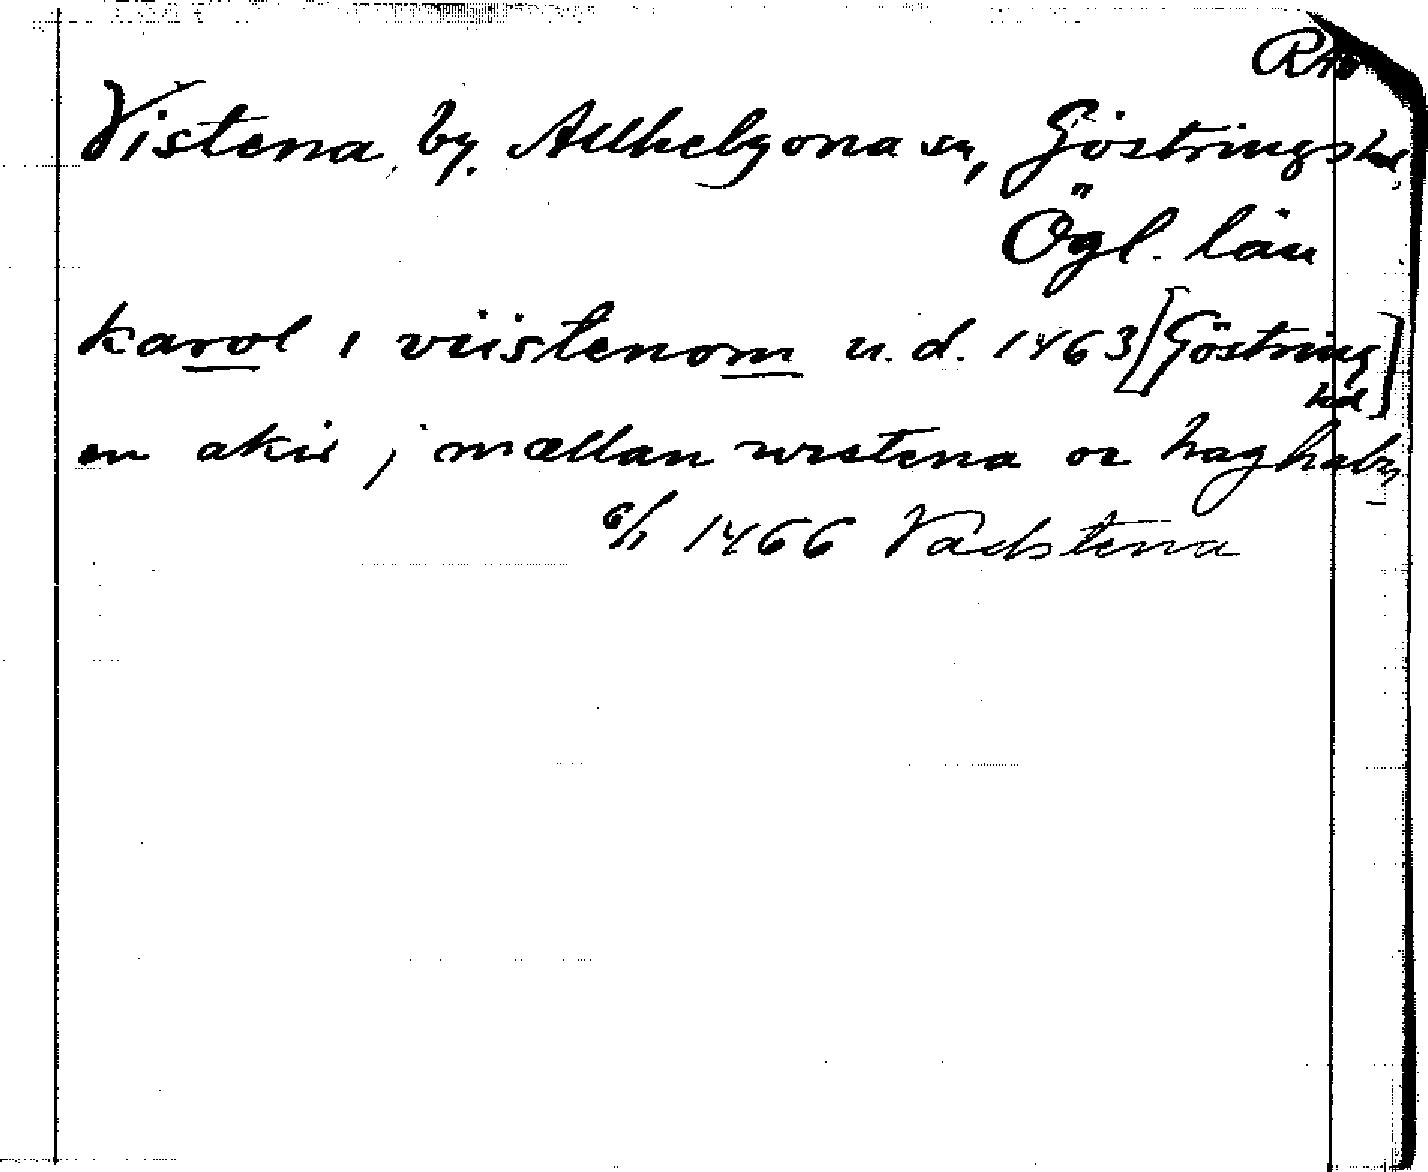 RAp
Vistena, by. Allhelgona sn, Göstrings hd,
Ögl. län
karol i viistenom u.d. 1463 [Göstring
hd]
en akir j mællan wistena oc haghaby
6/1 1466 Vadstena